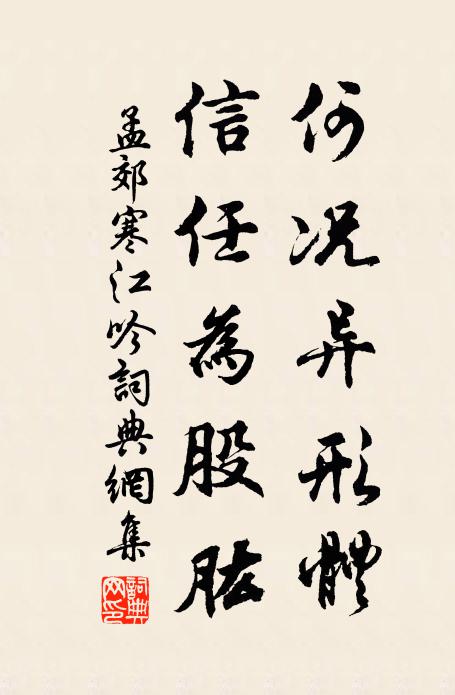 何况异形體
信任為股肱
孟郊寒江吟詞典網集
詞典網印